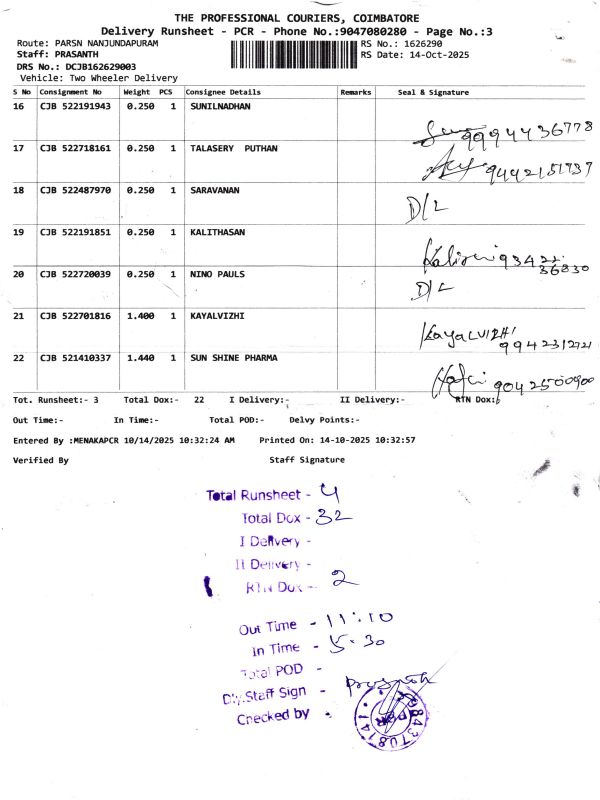 THE PROFESSIONAL COURIERS, COIMBATORE
Delivery Runsheet - PCR - Phone No.:9047080280 - Page No.:3
Route: PARSN NANJUNDAPURAM RS No.: 1626290
Staff: PRASANTH RS Date: 14-Oct-2025
DRS No.: DCJB162629003
Vehicle: Two Wheeler Delivery
S No Consignment No Weight PCS Consignee Details Remarks Seal & Signature
16 CJB 522191943 0.250 1 SUNILNADHAN
9994436778
17 CJB 522718161 0.250 1 TALASERY PUTHAN
18 CJB 522487970 0.250 1 SARAVANAN
D/L
19 CJB 522191851 0.250 1 KALITHASAN
93422
36830
20 CJB 522720039 0.250 1 NINO PAULS
D/L
21 CJB 522701816 1.400 1 KAYALVIZHI
KayaLVIZHI
22 CJB 521410337 1.440 1 SUN SHINE PHARMA
9042500900
Tot. Runsheet:- 3 Total Dox:- 22 I Delivery:- II Delivery:- RTN Dox:-
Out Time:- In Time:- Total POD:- Delvy Points:-
Entered By :MENAKAPCR 10/14/2025 10:32:24 AM Printed On: 14-10-2025 10:32:57
Verified By Staff Signature
Total Runsheet - 4
Total Dox - 32
I Delivery -
II Delivery -
RTN Dox - 2
Out Time - 11:10
In Time - 5.30
Total POD -
Dly.Staff Sign - Prasanth
Checked by -
PCR